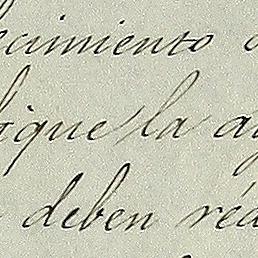 ecimiento
ique la a
deben réd